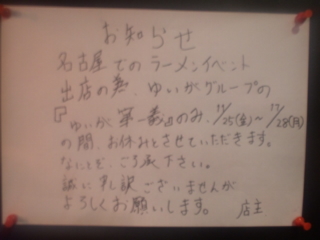 お知らせ
名古屋でのラーメンイベント
出店の為、ゆいがグループの
『ゆいが 第一義』のみ、11/25(金)~11/28(月)
の間、お休みとさせていただきます。
なにとぞ、ご了承下さい。
誠に申し訳ございませんが
よろしくお願いします。 店主